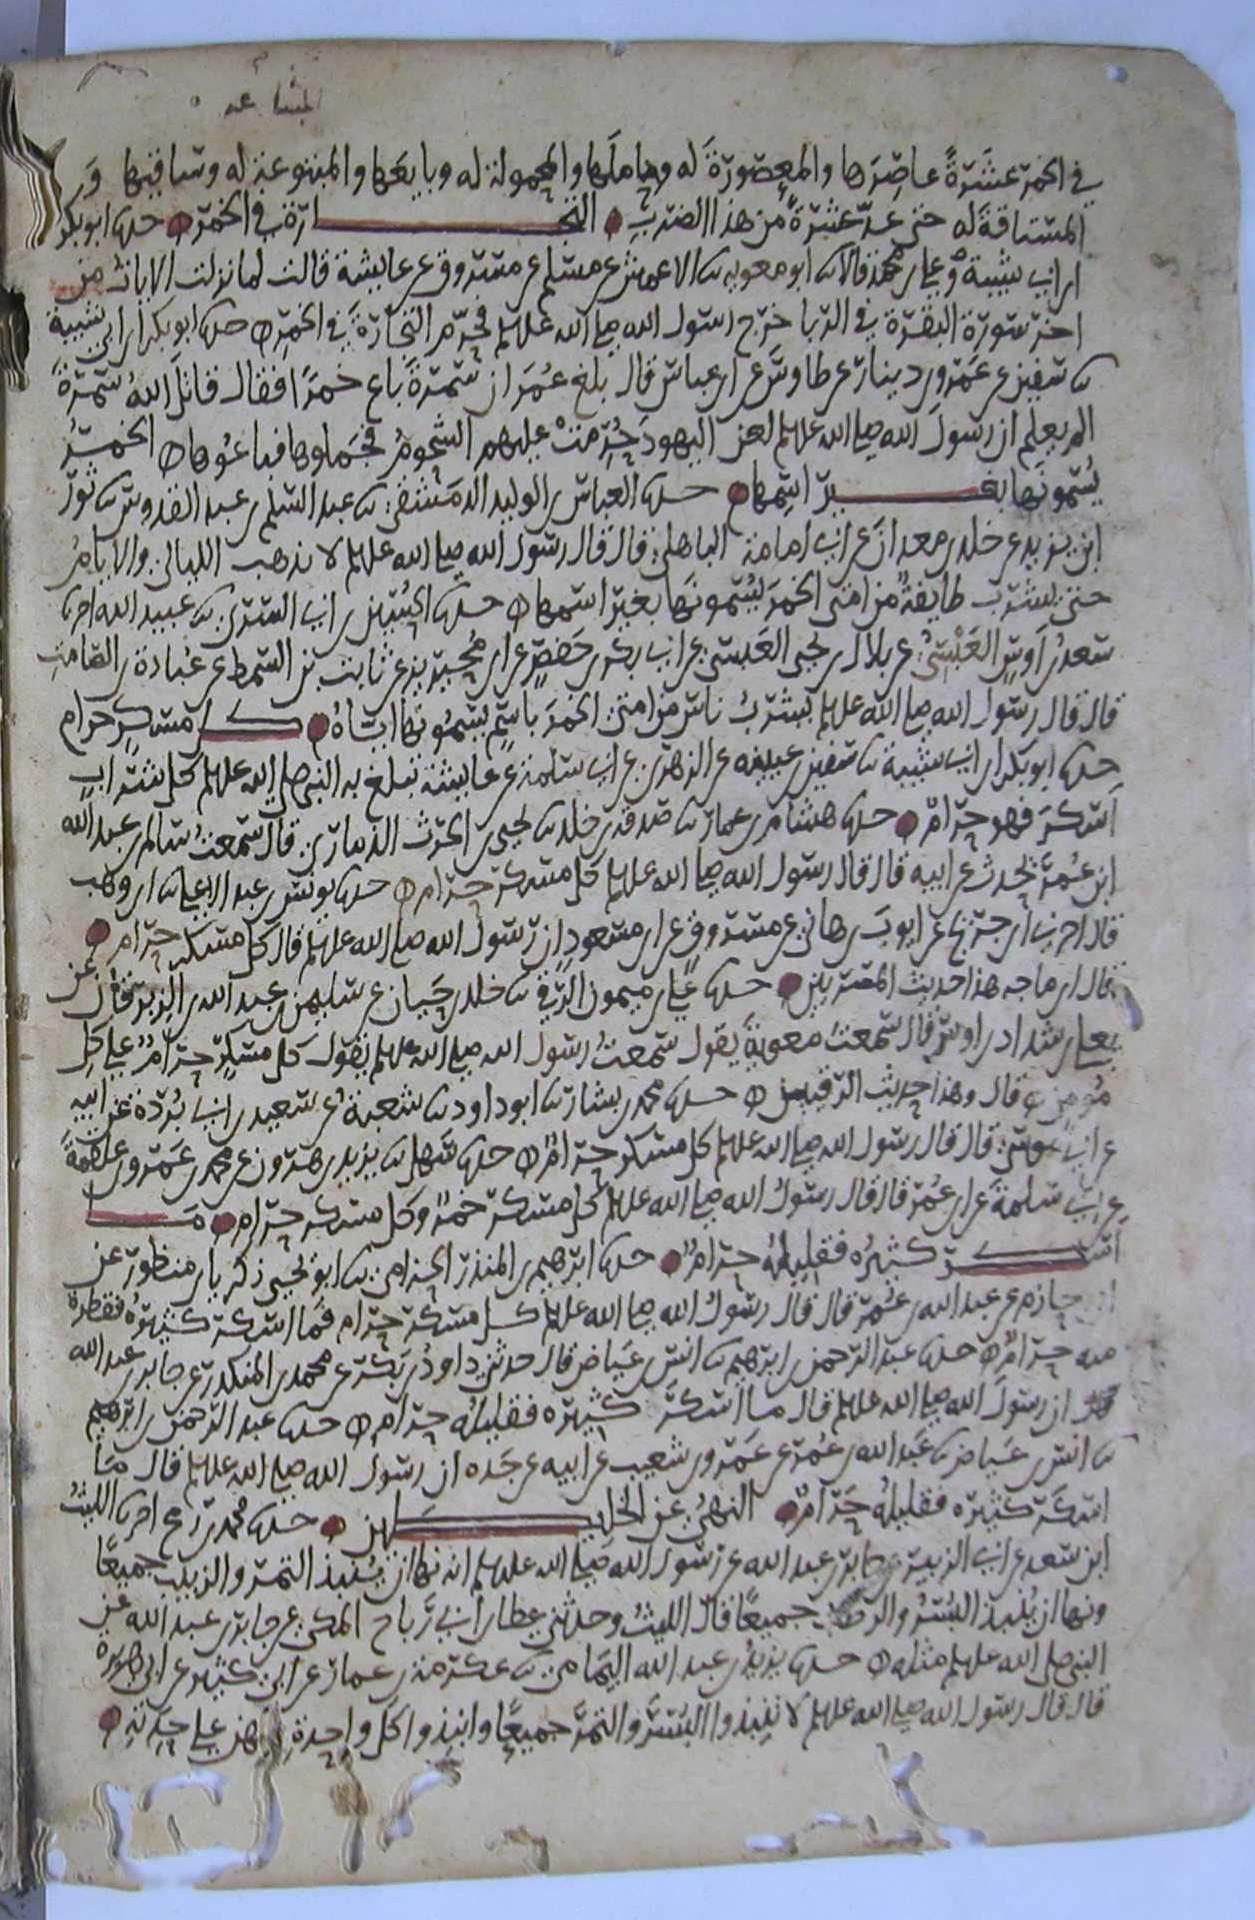 في الخمر عشرة عاصرها والمعصورة له وحاملها والمحمولة له وبايعها والمبتوعة له وساقيها و
المستاقة له حتى عد عشرة من هذا الضرب التجارة في الخمر حدثنا ابو بكر
ابن ابي شيبة وعلي بن محمد قالا نا ابو معوية نا الاعمش عن مسلم عن مسروق عن عايشة قالت لما نزلت الايات من
اخر سورة البقرة في الربا خرج رسول الله صلى الله عليه وسلم فحرم التجارة في الخمر حدثنا ابو بكر بن ابي شيبة
نا سفين عن عمرو بن دينار عن طاوس عن ابن عباس قال بلغ عمر ان سمرة باع خمرا فقال قاتل الله سمرة
الم يعلم ان رسول الله صلى الله عليه وسلم لعن اليهود حرمت عليهم الشحوم فجملوها فباعوها الخمر
يسمونها بغير اسمها حدثنا العباس بن الوليد الدمشقي نا عبد السلم بن عبد القدوس نا ثور
ابن يزيد عن خلد بن معدان عن ابي امامة الباهلي قال قال رسول الله صلى الله عليه وسلم لا تذهب الليالي والايام
حتى يشرب طايفة من امتي الخمر يسمونها بغير اسمها حدثنا الحسين بن ابي السري نا عبيد الله اخبرنا
سعد بن اوس العبسي عن بلال بن يحيى العبسي عن ابي بكر بن حفص عن ابن محيريز عن ثابت بن السمط عن عبادة بن الصامت
قال قال رسول الله صلى الله عليه وسلم يشرب ناس من امتي الخمر باسم يسمونها اياه كل مسكر حرام
حدثنا ابو بكر بن ابي شيبة نا سفين بن عيينه عن الزهري عن ابي سلمة عن عايشة تبلغ به النبي صلى الله عليه وسلم كل شراب
اسكر فهو حرام حدثنا هشام بن عمار نا صدقة بن خلد نا يحيى بن الحرث الذماري قال سمعت سالم بن عبد الله
ابن عمر يحدث عن ابيه قال قال رسول الله صلى الله عليه وسلم كل مسكر حرام حدثنا يونس بن عبد الاعلى نا ابن وهب
قال اخبرنا ابن جريج عن ايوب بن هاني عن مسروق عن ابن مسعود ان رسول الله صلى الله عليه وسلم قال كل مسكر حرام
قال ابن ماجه هذا حديث المصريين حدثنا علي بن ميمون الرقي نا خلد بن حيان عن سليمن بن عبد الله بن الزبرقان عن
يعلى بن شداد بن اوس قال سمعت معوية يقول سمعت رسول الله صلى الله عليه وسلم يقول كل مسكر حرام على كل
مومن قال وهذا حديث الرقيين حدثنا محمد بن بشار نا ابو داود نا شعبة عن سعيد بن ابي بردة عن ابيه
عن ابي موسى قال قال رسول الله صلى الله عليه وسلم كل مسكر حرام حدثنا سهل نا يزيد بن هرون عن محمد بن عمرو بن علقمة
عن ابي سلمة عن ابن عمر قال قال رسول الله صلى الله عليه وسلم كل مسكر خمر وكل مسكر حرام ما
اسكر كثيره فقليله حرام حدثنا ابرهيم بن المنذر الحزامي نا ابو يحيى زكريا بن منظور عن
ابي حازم عن عبد الله بن عمر قال قال رسول الله صلى الله عليه وسلم كل مسكر حرام فما اسكر كثيره فقطرة
منه حرام حدثنا عبد الرحمن بن ابرهيم نا انس بن عياض قال حدثني داود بن بكر عن محمد بن المنكدر عن جابر بن عبد الله
ان رسول الله صلى الله عليه وسلم قال ما اسكر كثيره فقليله حرام حدثنا عبد الرحمن بن ابرهيم
نا انس بن عياض نا عبد الله بن عمر عن عمرو بن شعيب عن ابيه عن جده ان رسول الله صلى الله عليه وسلم قال ما
اسكر كثيره فقليله حرام النهي عن الخليطين حدثنا محمد بن رمح اخبرنا الليث
ابن سعد عن ابي الزبير عن جابر بن عبد الله عن رسول الله صلى الله عليه وسلم انه نها ان ينبذ التمر والزبيب جميعا
ونها ان ينبذ البسر والرطب جميعا قال الليث وحدثني عطا بن ابي رباح المكي عن جابر بن عبد الله عن
النبي صلى الله عليه وسلم مثله حدثنا يزيد بن عبد الله اليمامي نا عكرمة بن عمار عن ابي كثير عن ابي هريرة
قال قال رسول الله صلى الله عليه وسلم لا تنبذوا البسر والتمر جميعا وانبذوا كل واحدة منهن على حدته